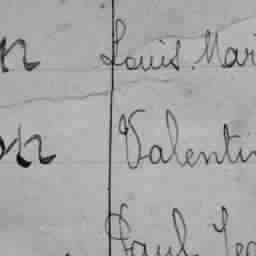 n Louis Mari
on Valentin
Paul Jea